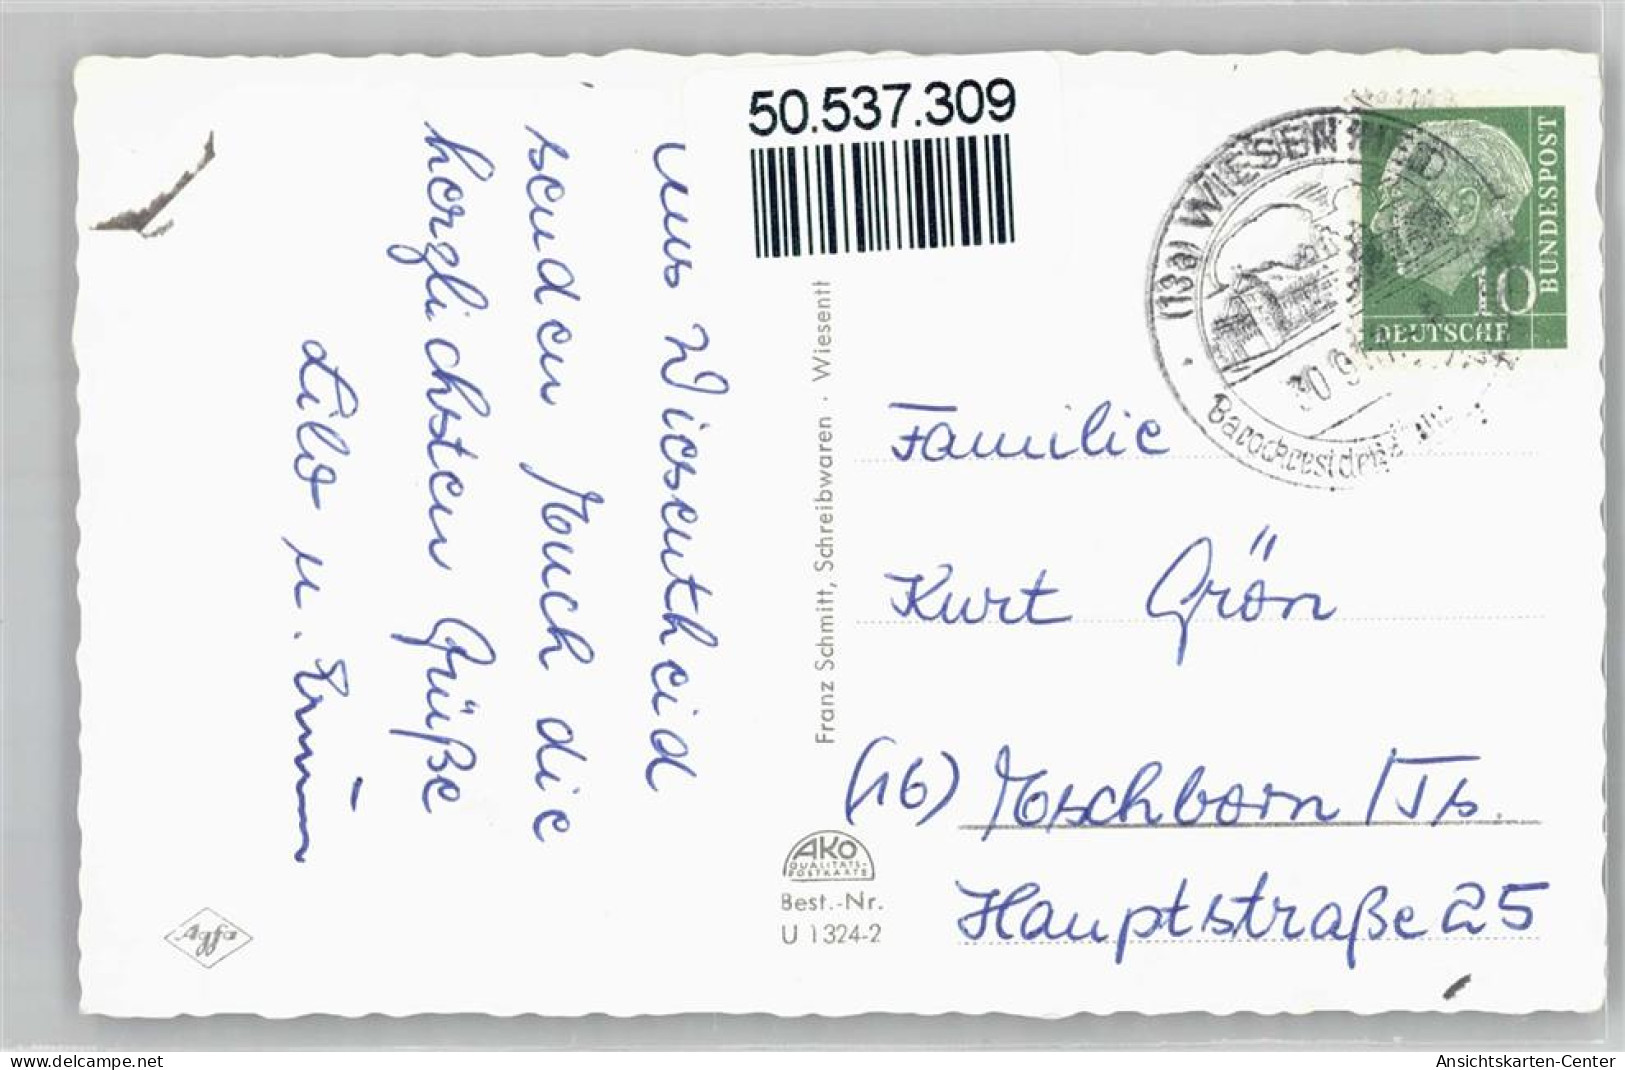 50.537.309
(13a) WIESENTHEID
Barockresidenz
30.9
BUNDESPOST
10
DEUTSCHE
Aus Wiesentheid
senden Euch die
herzlichsten Grüße
Lilo u. Erwin
Franz Schmitt, Schreibwaren · Wiesentl
Familie
Kurt Grön
(16) Eschborn / Ts.
Hauptstraße 25
AKO
QUALITÄTS-
POSTKARTE
Best.-Nr.
U 1324-2
Agfa
www.delcampe.net
Ansichtskarten-Center